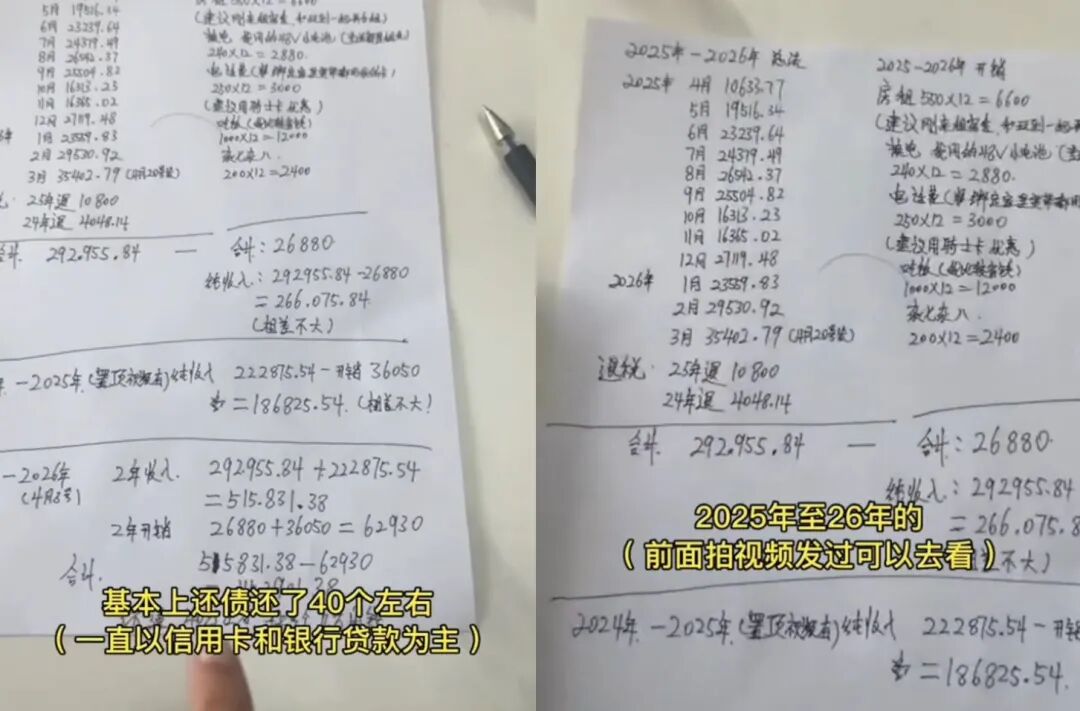 5月 19516.34
6月 23239.64
7月 24379.49
8月 26542.37
9月 25504.82
10月 16313.23
11月 16365.02
12月 27119.48
1月 23559.83
2月 29530.92
3月 35402.79 (4月20号发)
25年退 10800
24年退 4048.14
合计 292.955.84 —
×12=6600
240×12=2880.
250×12=3000
(建议用骑士卡优惠)
1000×12=12000
200×12=2400
合计:26880
纯收入:292955.84-26880
=266.075.84
(相差不大)
-2025年(置顶视频有)纯收入 222875.54-开销 36050
=186825.54.(相差不大!
-2026年 2年收入 292955.84+222875.54
(4月3号) =515.831.38
2年开销 26880+36050=62930
合计 515831.38-62930
基本上还债还了40个左右
(一直以信用卡和银行贷款为主)
2025年-2026年 总流
2025年 4月 10633.77
5月 19516.34
6月 23239.64
7月 24379.49
8月 26542.37
9月 25504.82
10月 16313.23
11月 16365.02
12月 27119.48
2026年 1月 23559.83
2月 29530.92
3月 35402.79 (4月20号发)
退税: 25年退 10800
24年退 4048.14
合计 292.955.84 —
2025-2026年 开销
房租 550×12=6600
240×12=2880.
250×12=3000
(建议用骑士卡优惠)
1000×12=12000
200×12=2400
合计:26880
纯收入:292955.84
=266.075.8
2025年至26年的
(前面拍视频发过可以去看)
2024年-2025年(置顶视频有)纯收入 222875.54-开
=186825.54.